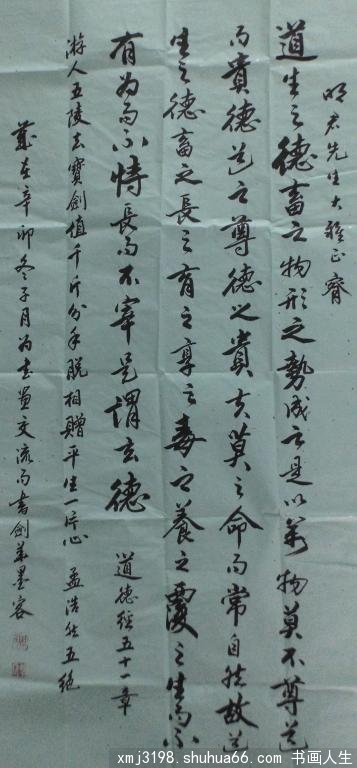 明君先生大雅正齋
道生之德畜之物形之勢成之是以萬物莫不尊道
而貴德道之尊德之貴夫莫之命而常自然故道
生之德畜之長之育之亭之毒之養之覆之生而不
有为而不恃長而不宰是謂玄德 道德經五十一章
游人五陵去寶劍值千斤分手脱相贈平生一片心 孟浩然五絶
歲在辛卯冬子月为书畫交流而書劍華墨客
xmj3198.shuhua66.com 书画人生